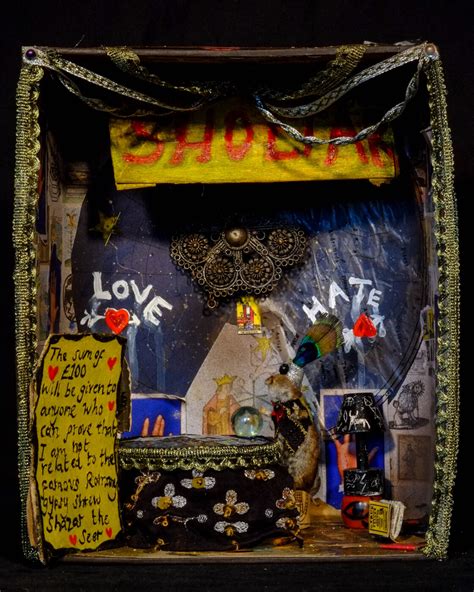 LOVE
HATE
The sum of
£100
will be given to
anyone who
can prove that
I am not
related to the
famous Romany
gypsy shrew
the
Seer